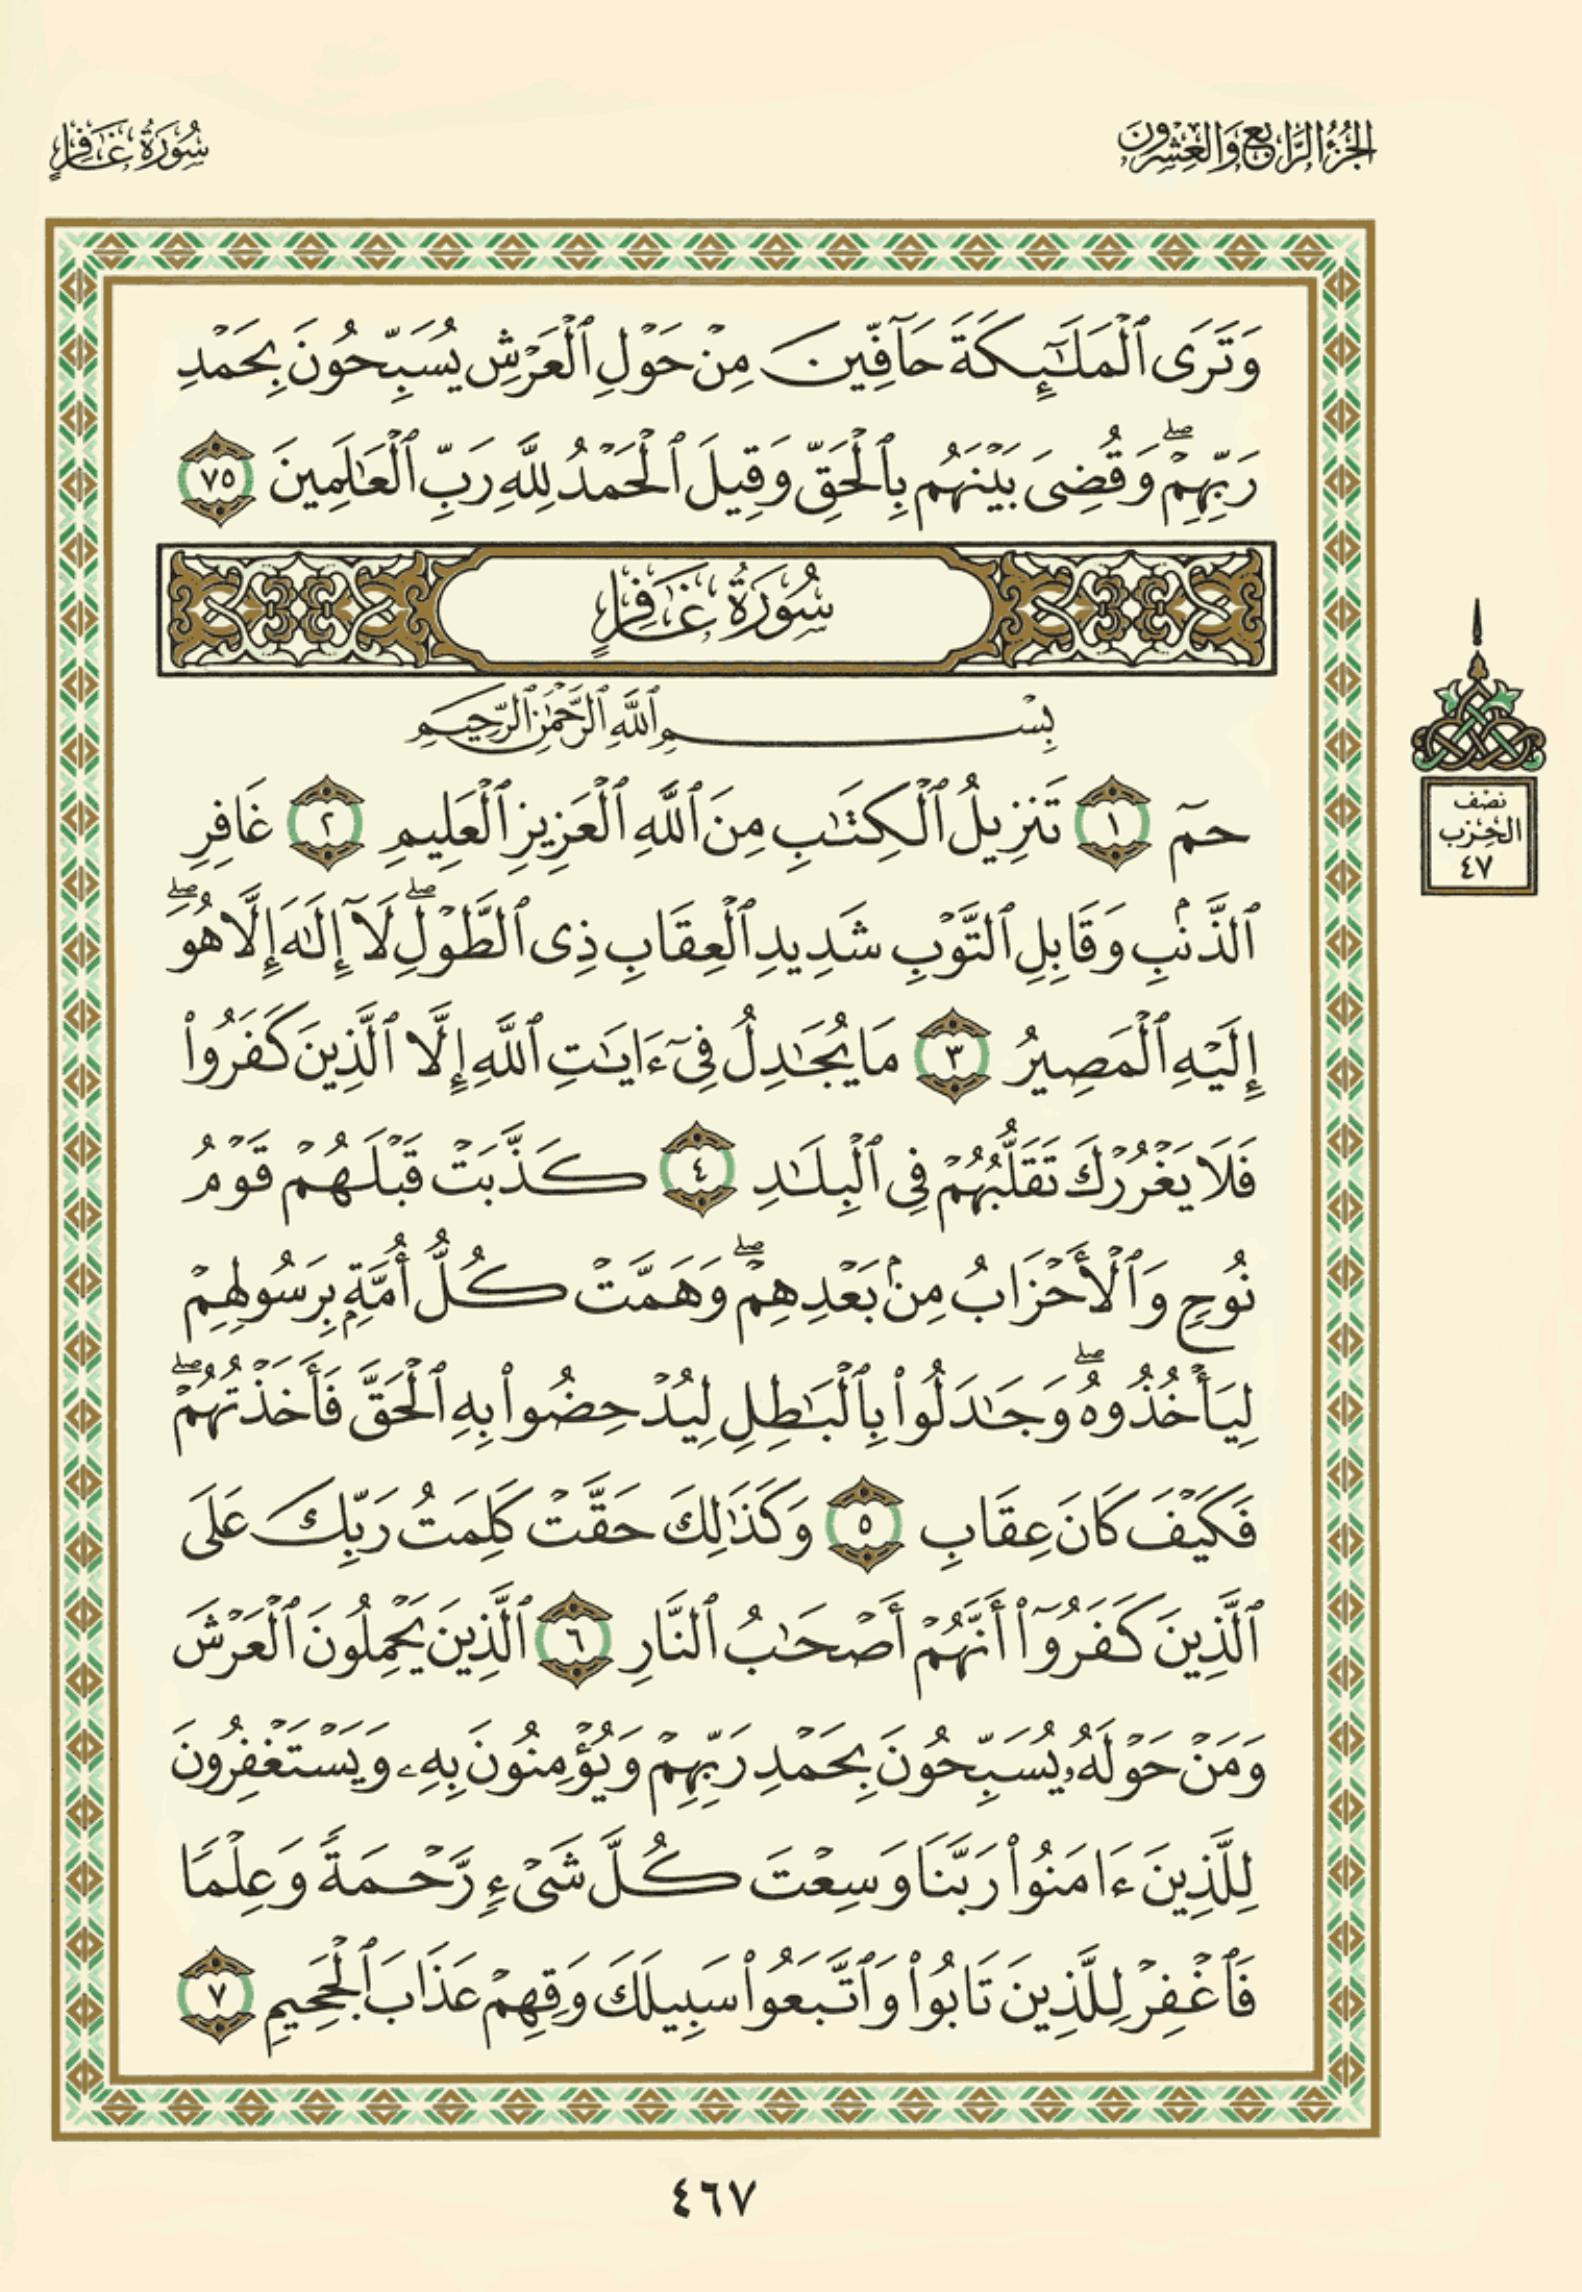 الجزء الرابع والعشرون
سورة غافر
وَتَرَى ٱلْمَلَـٰٓئِكَةَ حَآفِّينَ مِنْ حَوْلِ ٱلْعَرْشِ يُسَبِّحُونَ بِحَمْدِ
رَبِّهِمْ ۖ وَقُضِىَ بَيْنَهُم بِٱلْحَقِّ وَقِيلَ ٱلْحَمْدُ لِلَّهِ رَبِّ ٱلْعَـٰلَمِينَ ٧٥
سُورَةُ غَافِرٍ
بِسْمِ ٱللَّهِ ٱلرَّحْمَـٰنِ ٱلرَّحِيمِ
حمٓ ١ تَنزِيلُ ٱلْكِتَـٰبِ مِنَ ٱللَّهِ ٱلْعَزِيزِ ٱلْعَلِيمِ ٢ غَافِرِ
ٱلذَّنۢبِ وَقَابِلِ ٱلتَّوْبِ شَدِيدِ ٱلْعِقَابِ ذِى ٱلطَّوْلِ ۖ لَآ إِلَـٰهَ إِلَّا هُوَ ۖ
إِلَيْهِ ٱلْمَصِيرُ ٣ مَا يُجَـٰدِلُ فِىٓ ءَايَـٰتِ ٱللَّهِ إِلَّا ٱلَّذِينَ كَفَرُوا۟
فَلَا يَغْرُرْكَ تَقَلُّبُهُمْ فِى ٱلْبِلَـٰدِ ٤ كَذَّبَتْ قَبْلَهُمْ قَوْمُ
نُوحٍ وَٱلْأَحْزَابُ مِنۢ بَعْدِهِمْ ۖ وَهَمَّتْ كُلُّ أُمَّةٍۭ بِرَسُولِهِمْ
لِيَأْخُذُوهُ ۖ وَجَـٰدَلُوا۟ بِٱلْبَـٰطِلِ لِيُدْحِضُوا۟ بِهِ ٱلْحَقَّ فَأَخَذْتُهُمْ ۖ
فَكَيْفَ كَانَ عِقَابِ ٥ وَكَذَٰلِكَ حَقَّتْ كَلِمَتُ رَبِّكَ عَلَى
ٱلَّذِينَ كَفَرُوٓا۟ أَنَّهُمْ أَصْحَـٰبُ ٱلنَّارِ ٦ ٱلَّذِينَ يَحْمِلُونَ ٱلْعَرْشَ
وَمَنْ حَوْلَهُۥ يُسَبِّحُونَ بِحَمْدِ رَبِّهِمْ وَيُؤْمِنُونَ بِهِۦ وَيَسْتَغْفِرُونَ
لِلَّذِينَ ءَامَنُوا۟ رَبَّنَا وَسِعْتَ كُلَّ شَىْءٍ رَّحْمَةً وَعِلْمًا
فَٱغْفِرْ لِلَّذِينَ تَابُوا۟ وَٱتَّبَعُوا۟ سَبِيلَكَ وَقِهِمْ عَذَابَ ٱلْجَحِيمِ ٧
نصف
الحزب
٤٧
٤٦٧